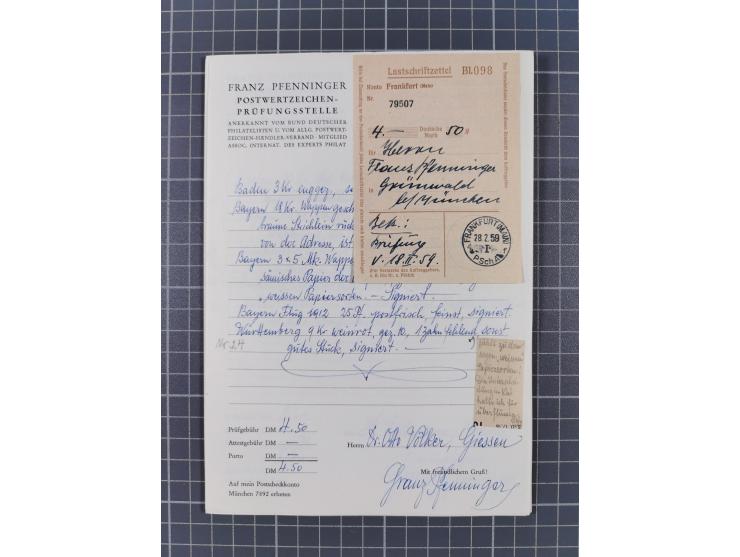 FRANZ PFENNINGER
POSTWERTZEICHEN-
PRÜFUNGSSTELLE
ANERKANNT VOM BUND DEUTSCHER
PHILATELISTEN U. VOM ALLG. POSTWERT-
ZEICHEN-HÄNDLER-VERBAND · MITGLIED
ASSOC. INTERNAT. DES EXPERTS PHILAT
Lastschriftzettel Bl.098
Konto Frankfurt (Main)
Nr. 79507
4.— Deutsche Mark 50
für Herrn
Franz Pfenninger
in Grünwald
bei München
Betr.:
Prüfung
v. 18.II.59.
FRANKFURT (MAIN)
28.2.59
PSchA
Baden 3 Kr enggez,
Bayern 18 Kr. Wappen gesch
braune Strichlein rück
von der Adresse, ist
Bayern 3 x 5 Mk. Wappe
sämisches Papier der
"weissen Papiersorten. — Signiert.
Bayern Flug 1912 25 Pf. postfrisch, feinst, signiert.
Württemberg 9 Kr weinrot, gez. 10, 1 Zahn fehlend sonst
Nr. 24 gutes Stück, signiert. —
weissen
Papiersorten!
halte ich für
überflüssig
Prüfgebühr DM 4.50
Attestgebühr DM —
Porto DM —
DM 4.50
Auf mein Postscheckkonto
München 7892 erbeten
Herrn Dr. Otto Völker, Giessen
Mit freundlichem Gruß!
Franz Pfenninger